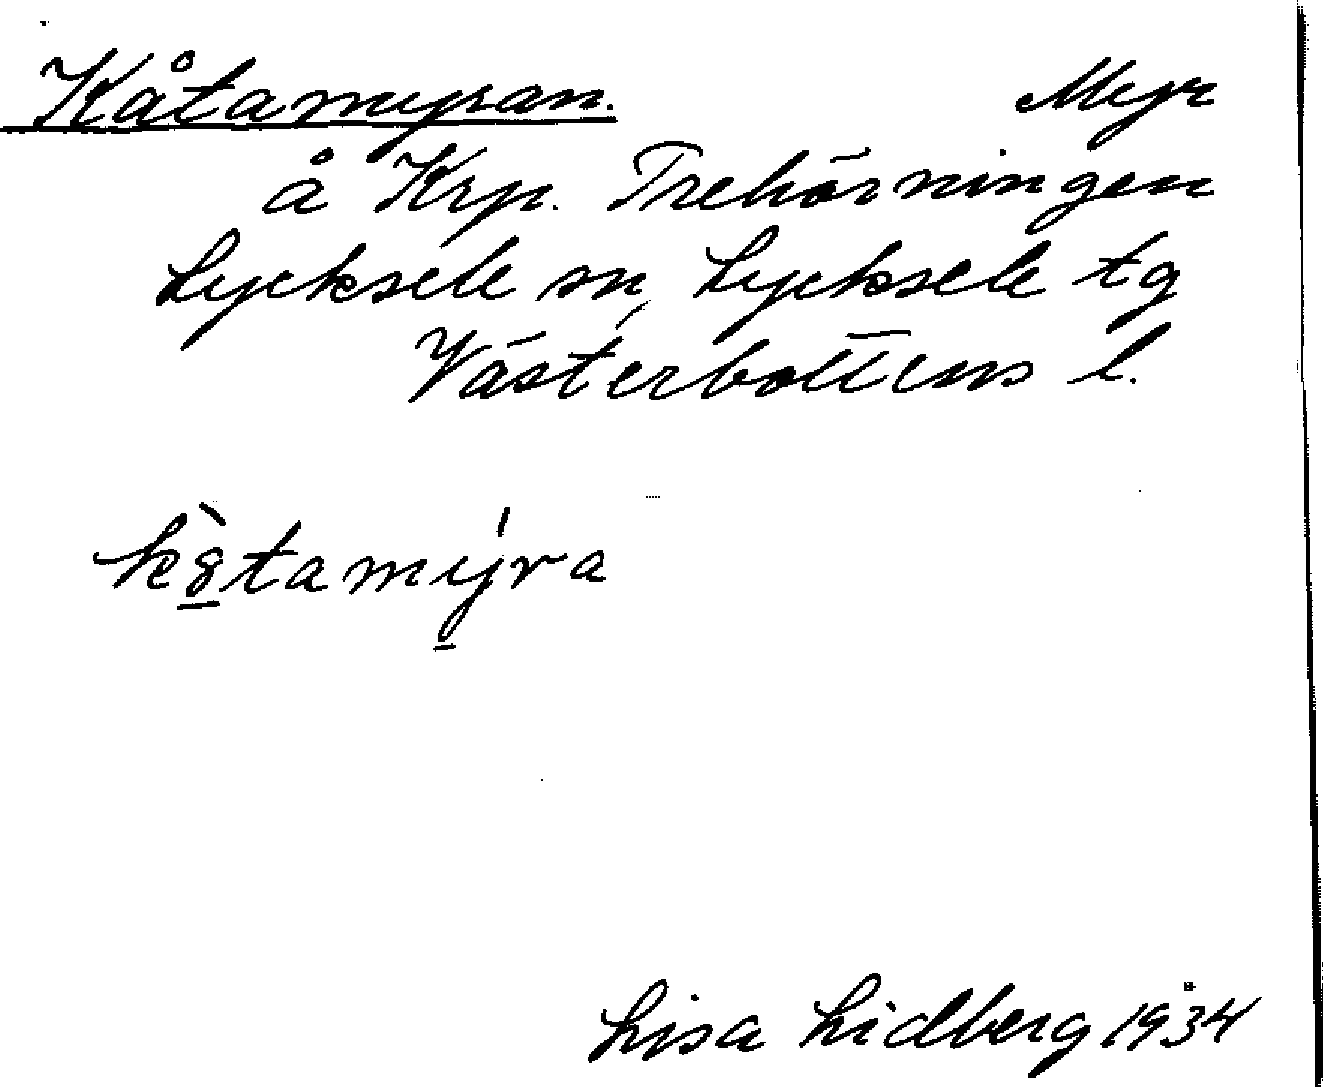 Kåtamyran. Myr
å Krp. Trehörningen
Lycksele sn, Lycksele tg
Västerbottens l.
kò̱tamý̱ra
Lisa Lidberg 1934